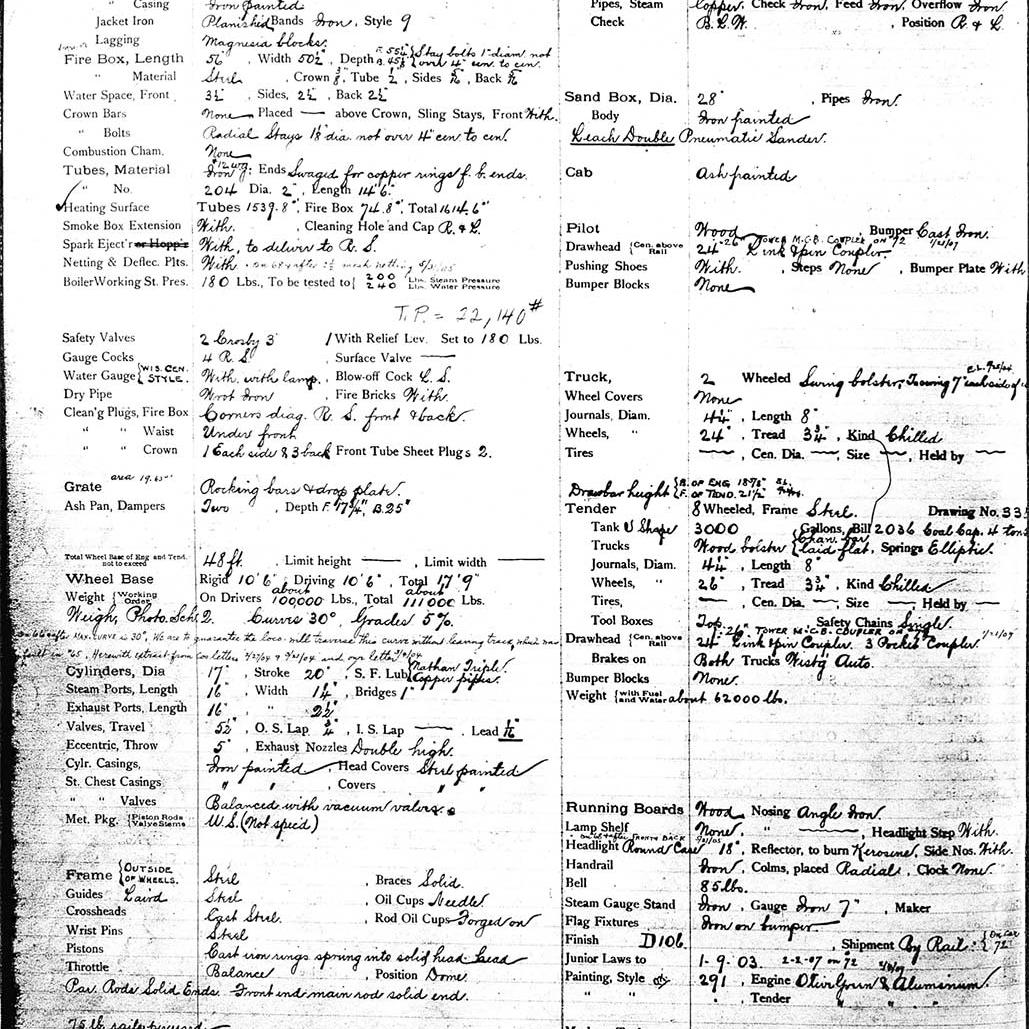 " Casing Iron painted
Jacket Iron Planished Bands Iron, Style 9
Lagging Magnesia blocks.
Fire Box, Length 56", Width 50½", Depth F. 55½" B. 45½" { Stay bolts 1" diam. not over 4" cen. to cen.
" Material Steel, Crown ⅜, Tube ½, Sides 5/16, Back 5/16
Water Space, Front 3½, Sides, 2½, Back 2½
Crown Bars None Placed — above Crown, Sling Stays, Front With.
" Bolts Radial Stays 1⅛ dia not over 4" cen. to cen.
Combustion Cham. None
Tubes, Material Iron #12 W.G.: Ends Swaged for copper rings f. b. ends.
" No. 204 Dia. 2", Length 14'6"
Heating Surface Tubes 1539.8", Fire Box 74.8", Total 1614.6"
Smoke Box Extension With. , Cleaning Hole and Cap R. & L.
Spark Eject'r or Hopp'r With, to deliver to R. S.
Netting & Deflec. Plts. With.
Boiler Working St. Pres. 180 Lbs., To be tested to { 200 Lbs. Steam Pressure 240 Lbs. Water Pressure
T.P. = 22,140#
Safety Valves 2 Crosby 3" 1 With Relief Lev. Set to 180 Lbs.
Gauge Cocks 4 R. S. , Surface Valve —
Water Gauge { WIS. CEN. STYLE. With, with lamp. , Blow-off Cock L. S.
Dry Pipe Wrot Iron , Fire Bricks With.
Clean'g Plugs, Fire Box Corners diag. R. S. front & back.
" " Waist Under front
" " Crown 1 Each side & 3 back Front Tube Sheet Plugs 2.
area 19.65"
Grate Rocking bars & drop plate.
Ash Pan, Dampers Two , Depth F. 17¾", B. 25"
Total Wheel Base of Eng and Tend. not to exceed 48 ft. , Limit height — , Limit width —
Wheel Base Rigid 10'6", Driving 10'6", Total 17'9"
Weight { Working Order. On Drivers about 100000 Lbs., Total about 111000 Lbs.
Weigh, Photo. Sch. 2. Curves 30°, Grades 5%.
MAX. CURVE is 30°, We are to guarantee the loco. will traverse this curve without leaving track,
Cylinders, Dia 17", Stroke 20", S. F. Lub { Nathan Triple. Copper pipes.
Steam Ports, Length 16", Width 1¼", Bridges 1"
Exhaust Ports, Length 16", " 2½"
Valves, Travel 5½", O. S. Lap ¾", I. S. Lap — , Lead 1/16
Eccentric, Throw 5", Exhaust Nozzles Double high.
Cylr. Casings, Iron painted, Head Covers Steel painted
St. Chest Casings " " , Covers " "
" " Valves Balanced with vacuum valves.
Met. Pkg. { Piston Rods Valve Stems U. S. (Not spec'd)
Frame { OUTSIDE OF WHEELS. Steel , Braces Solid.
Guides Laird Steel , Oil Cups Needle
Crossheads Cast Steel. , Rod Oil Cups Forged on
Wrist Pins Steel
Pistons Cast iron rings sprung into solid head
Throttle Balance , Position Dome.
Par. Rods Solid Ends. Front end main rod solid end.
Pipes, Steam Copper, Check Iron, Feed Iron, Overflow Iron
Check B. L. W. , Position R. & L.
Sand Box, Dia. 28" , Pipes Iron.
Body Iron painted
Leach Double Pneumatic Sander.
Cab Ash painted
Pilot Wood , Bumper Cast Iron.
26" TOWER M.C.B. COUPLER ON 72 1/21/07
Drawhead { Cen. above Rail 24" Link & pin Coupler
Pushing Shoes With. , Steps None , Bumper Plate With
Bumper Blocks None
Truck, 2 Wheeled Swing bolster,
Wheel Covers None
Journals, Diam. 4¼", Length 8"
Wheels, " 24", Tread 3¾", Kind Chilled
Tires — , Cen. Dia. — , Size — , Held by —
Drawbar height { B. OF ENG. 18⅞" F. OF TEND. 21½"
Tender 8 Wheeled, Frame Steel. Drawing No. 335
Tank U Shape 3000 Gallons, Bill 2036 Coal Cap. 4 tons
Trucks Wood bolster { Chan. bar laid flat, Springs Elliptic.
Journals, Diam. 4¼", Length 8"
Wheels, " 26", Tread 3¾", Kind Chilled
Tires, — , Cen. Dia. — , Size — , Held by —
Tool Boxes Top. Safety Chains Single.
26" TOWER M.C.B. COUPLER ON 72 1/21/07
Drawhead { Cen. above Rail 24" Link & pin Coupler. 3 Pocket Coupler.
Brakes on Both Trucks Westg Auto.
Bumper Blocks None.
Weight { with Fuel and Water about 62000 lbs.
Running Boards Wood, Nosing Angle Iron.
Lamp Shelf None. " — , Headlight Step With.
Headlight Round Case 18", Reflector, to burn Kerosene, Side Nos. With.
Handrail Iron, Colms, placed Radial, Clock None.
Bell 85 lbs.
Steam Gauge Stand Iron, Gauge Iron 7" , Maker
Flag Fixtures Iron on bumper
Finish D106. , Shipment By Rail: { On Car 72
Junior Laws to 1-9-03. 2-2-07 on 72
Painting, Style 291, Engine Olive Green & Aluminum.
" " , Tender " " "